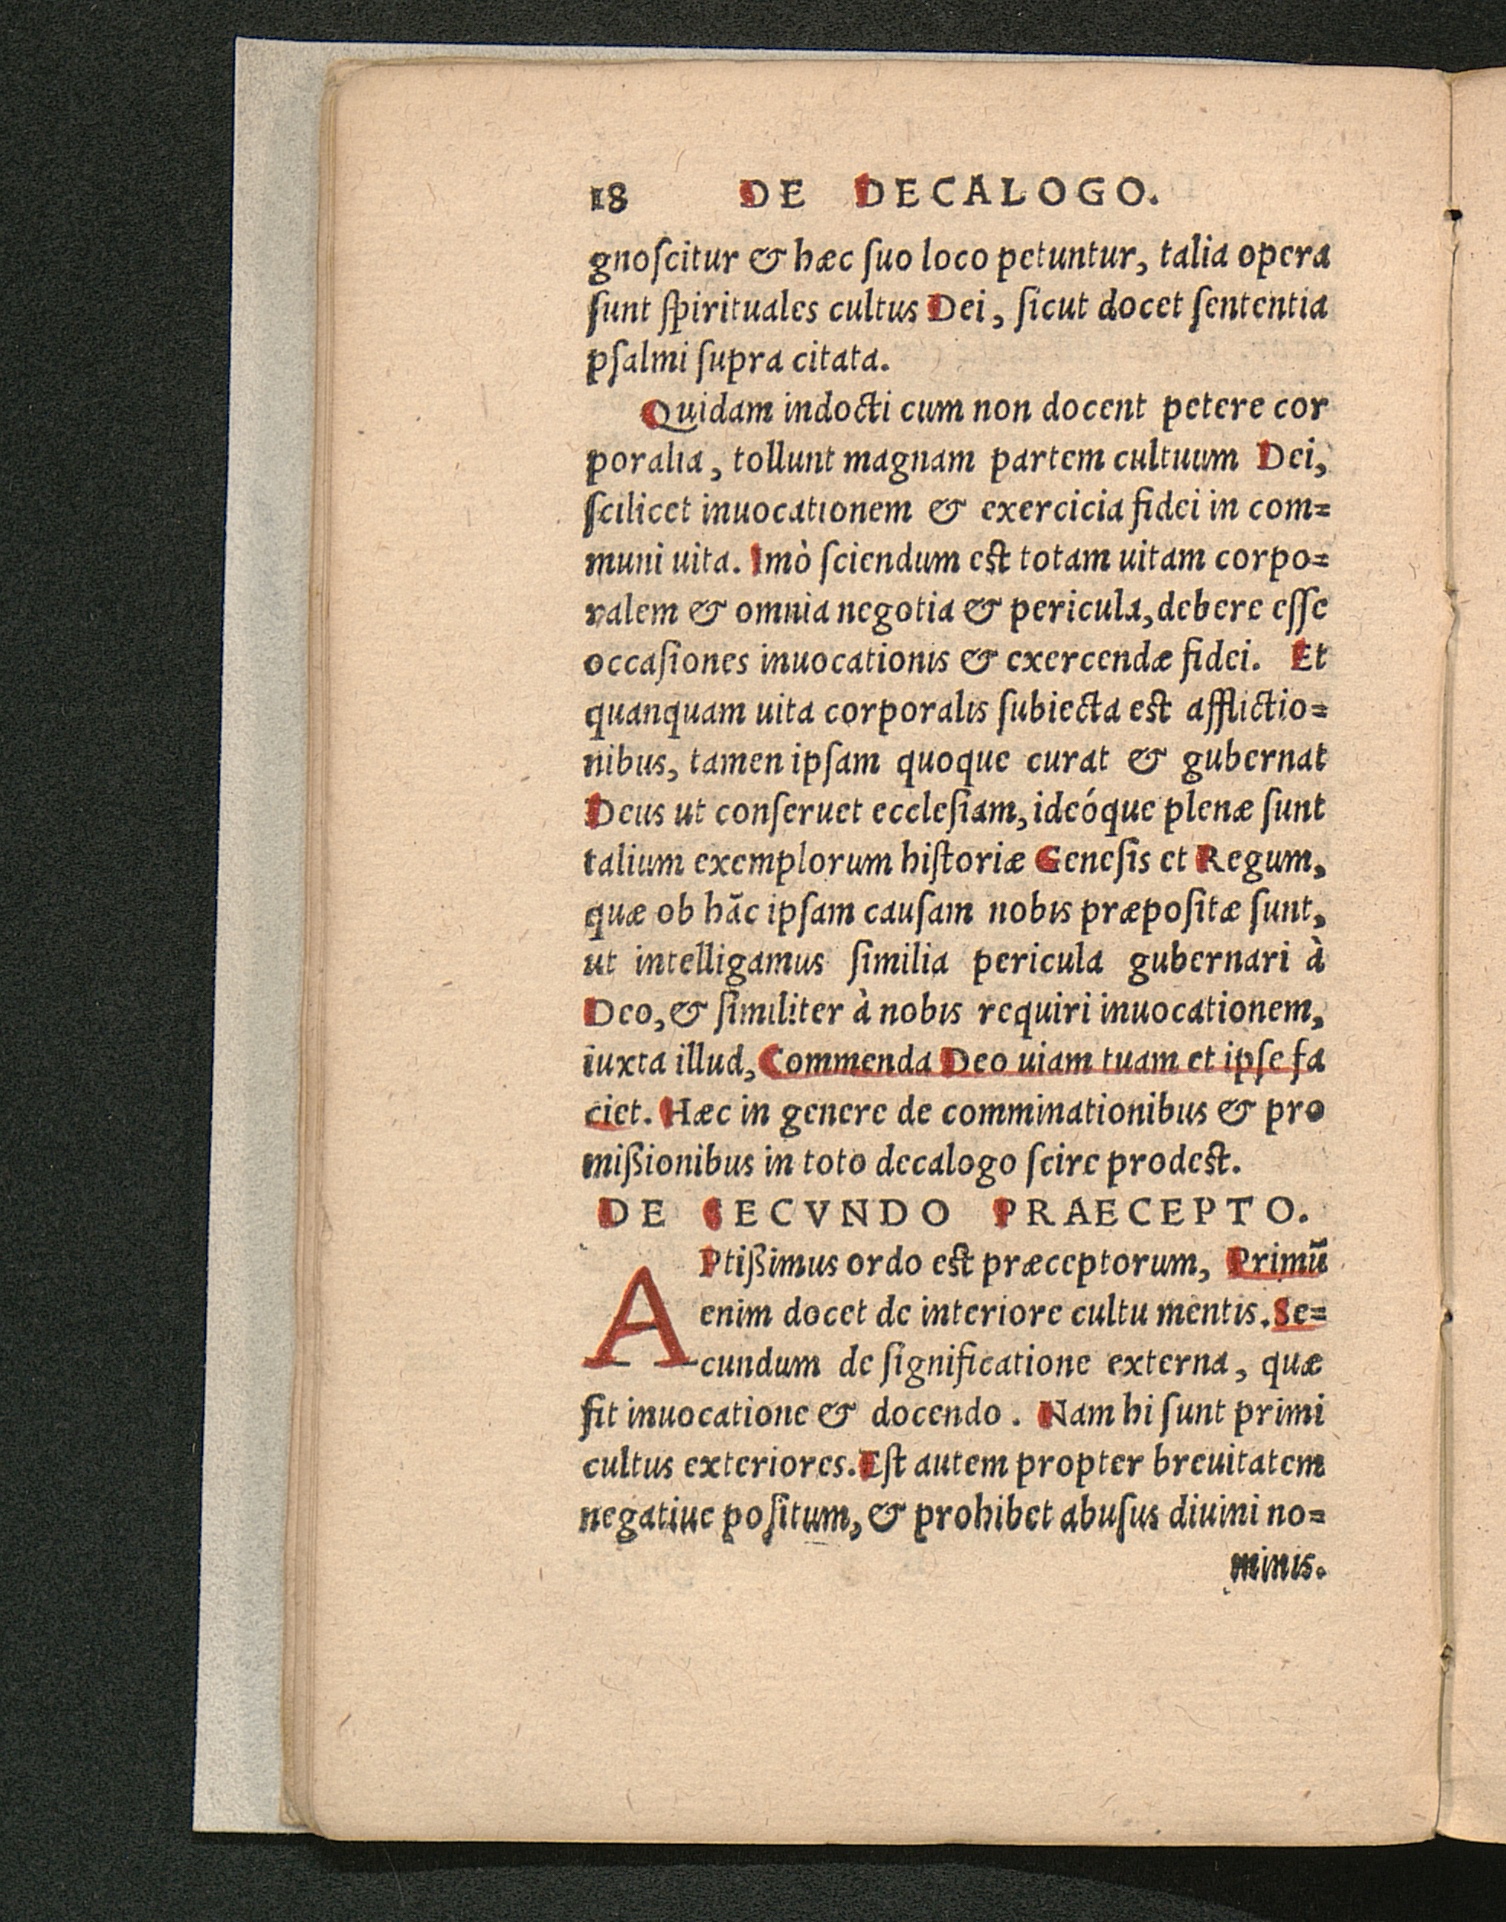 18 DE DECALOGO.
gnoſcitur & hæc ſuo loco petuntur, talia opera
ſunt ſpirituales cultus Dei, ſicut docet ſententia
pſalmi ſupra citata.
Quidam indocti cum non docent petere cor
poralia, tollunt magnam partem cultuum Dei,
ſcilicet inuocationem & exercicia fidei in com=
muni uita. Imò ſciendum eſt totam uitam corpo=
ralem & omnia negotia & pericula, debere eſſe
occaſiones inuocationis & exercendæ fidei. Et
quanquam uita corporalis ſubiecta eſt afflictio=
nibus, tamen ipſam quoque curat & gubernat
Deus ut conſeruet eccleſiam, ideóque plenæ ſunt
talium exemplorum hiſtoriæ Geneſis et Regum,
quæ ob hāc ipſam cauſam nobis præpoſitæ ſunt,
ut intelligamus ſimilia pericula gubernari à
Deo, & ſimiliter à nobis requiri inuocationem,
iuxta illud, Commenda Deo uiam tuam et ipſe fa
ciet. Hæc in genere de comminationibus & pro
mißionibus in toto decalogo ſcire prodeſt.
DE SECVNDO PRAECEPTO.
APtißimus ordo eſt præceptorum, Primū
enim docet de interiore cultu mentis. Se=
cundum de ſignificatione externa, quæ
fit inuocatione & docendo. Nam hi ſunt primi
cultus exteriores. Eſt autem propter breuitatem
negatiue poſitum, & prohibet abuſus diuini no=
minis.